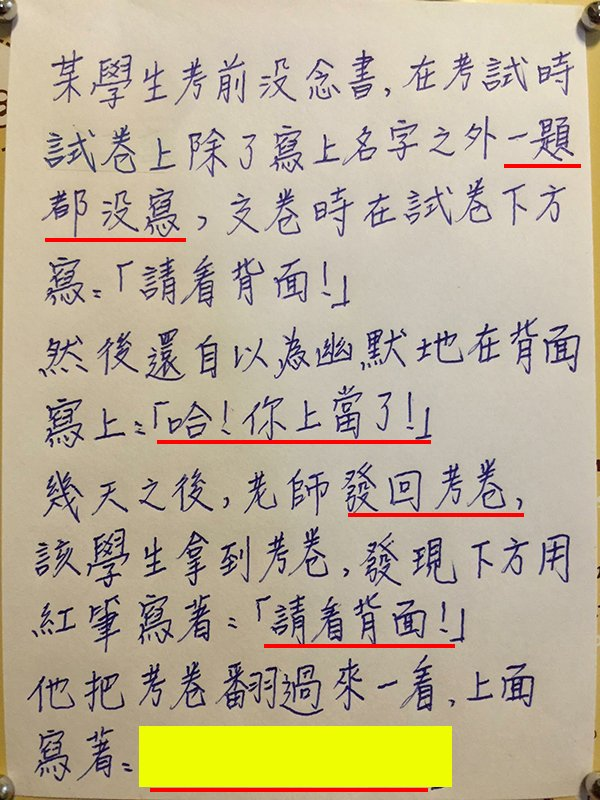 某學生考前没念書,在考試時
試卷上除了寫上名字之外一題
都没寫,交卷時在試卷下方
寫:「請看背面!」
然後還自以為幽默地在背面
寫上:「哈!你上當了!」
幾天之後,老師發回考卷,
該學生拿到考卷,發現下方用
紅筆寫著:「請看背面!」
他把考卷翻過來一看,上面
寫著: